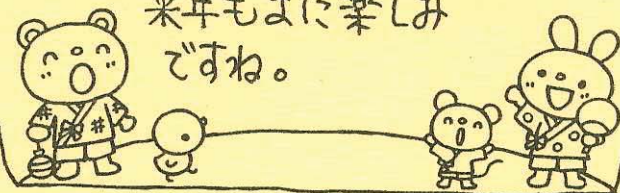 来年もまた楽しみ
ですね。